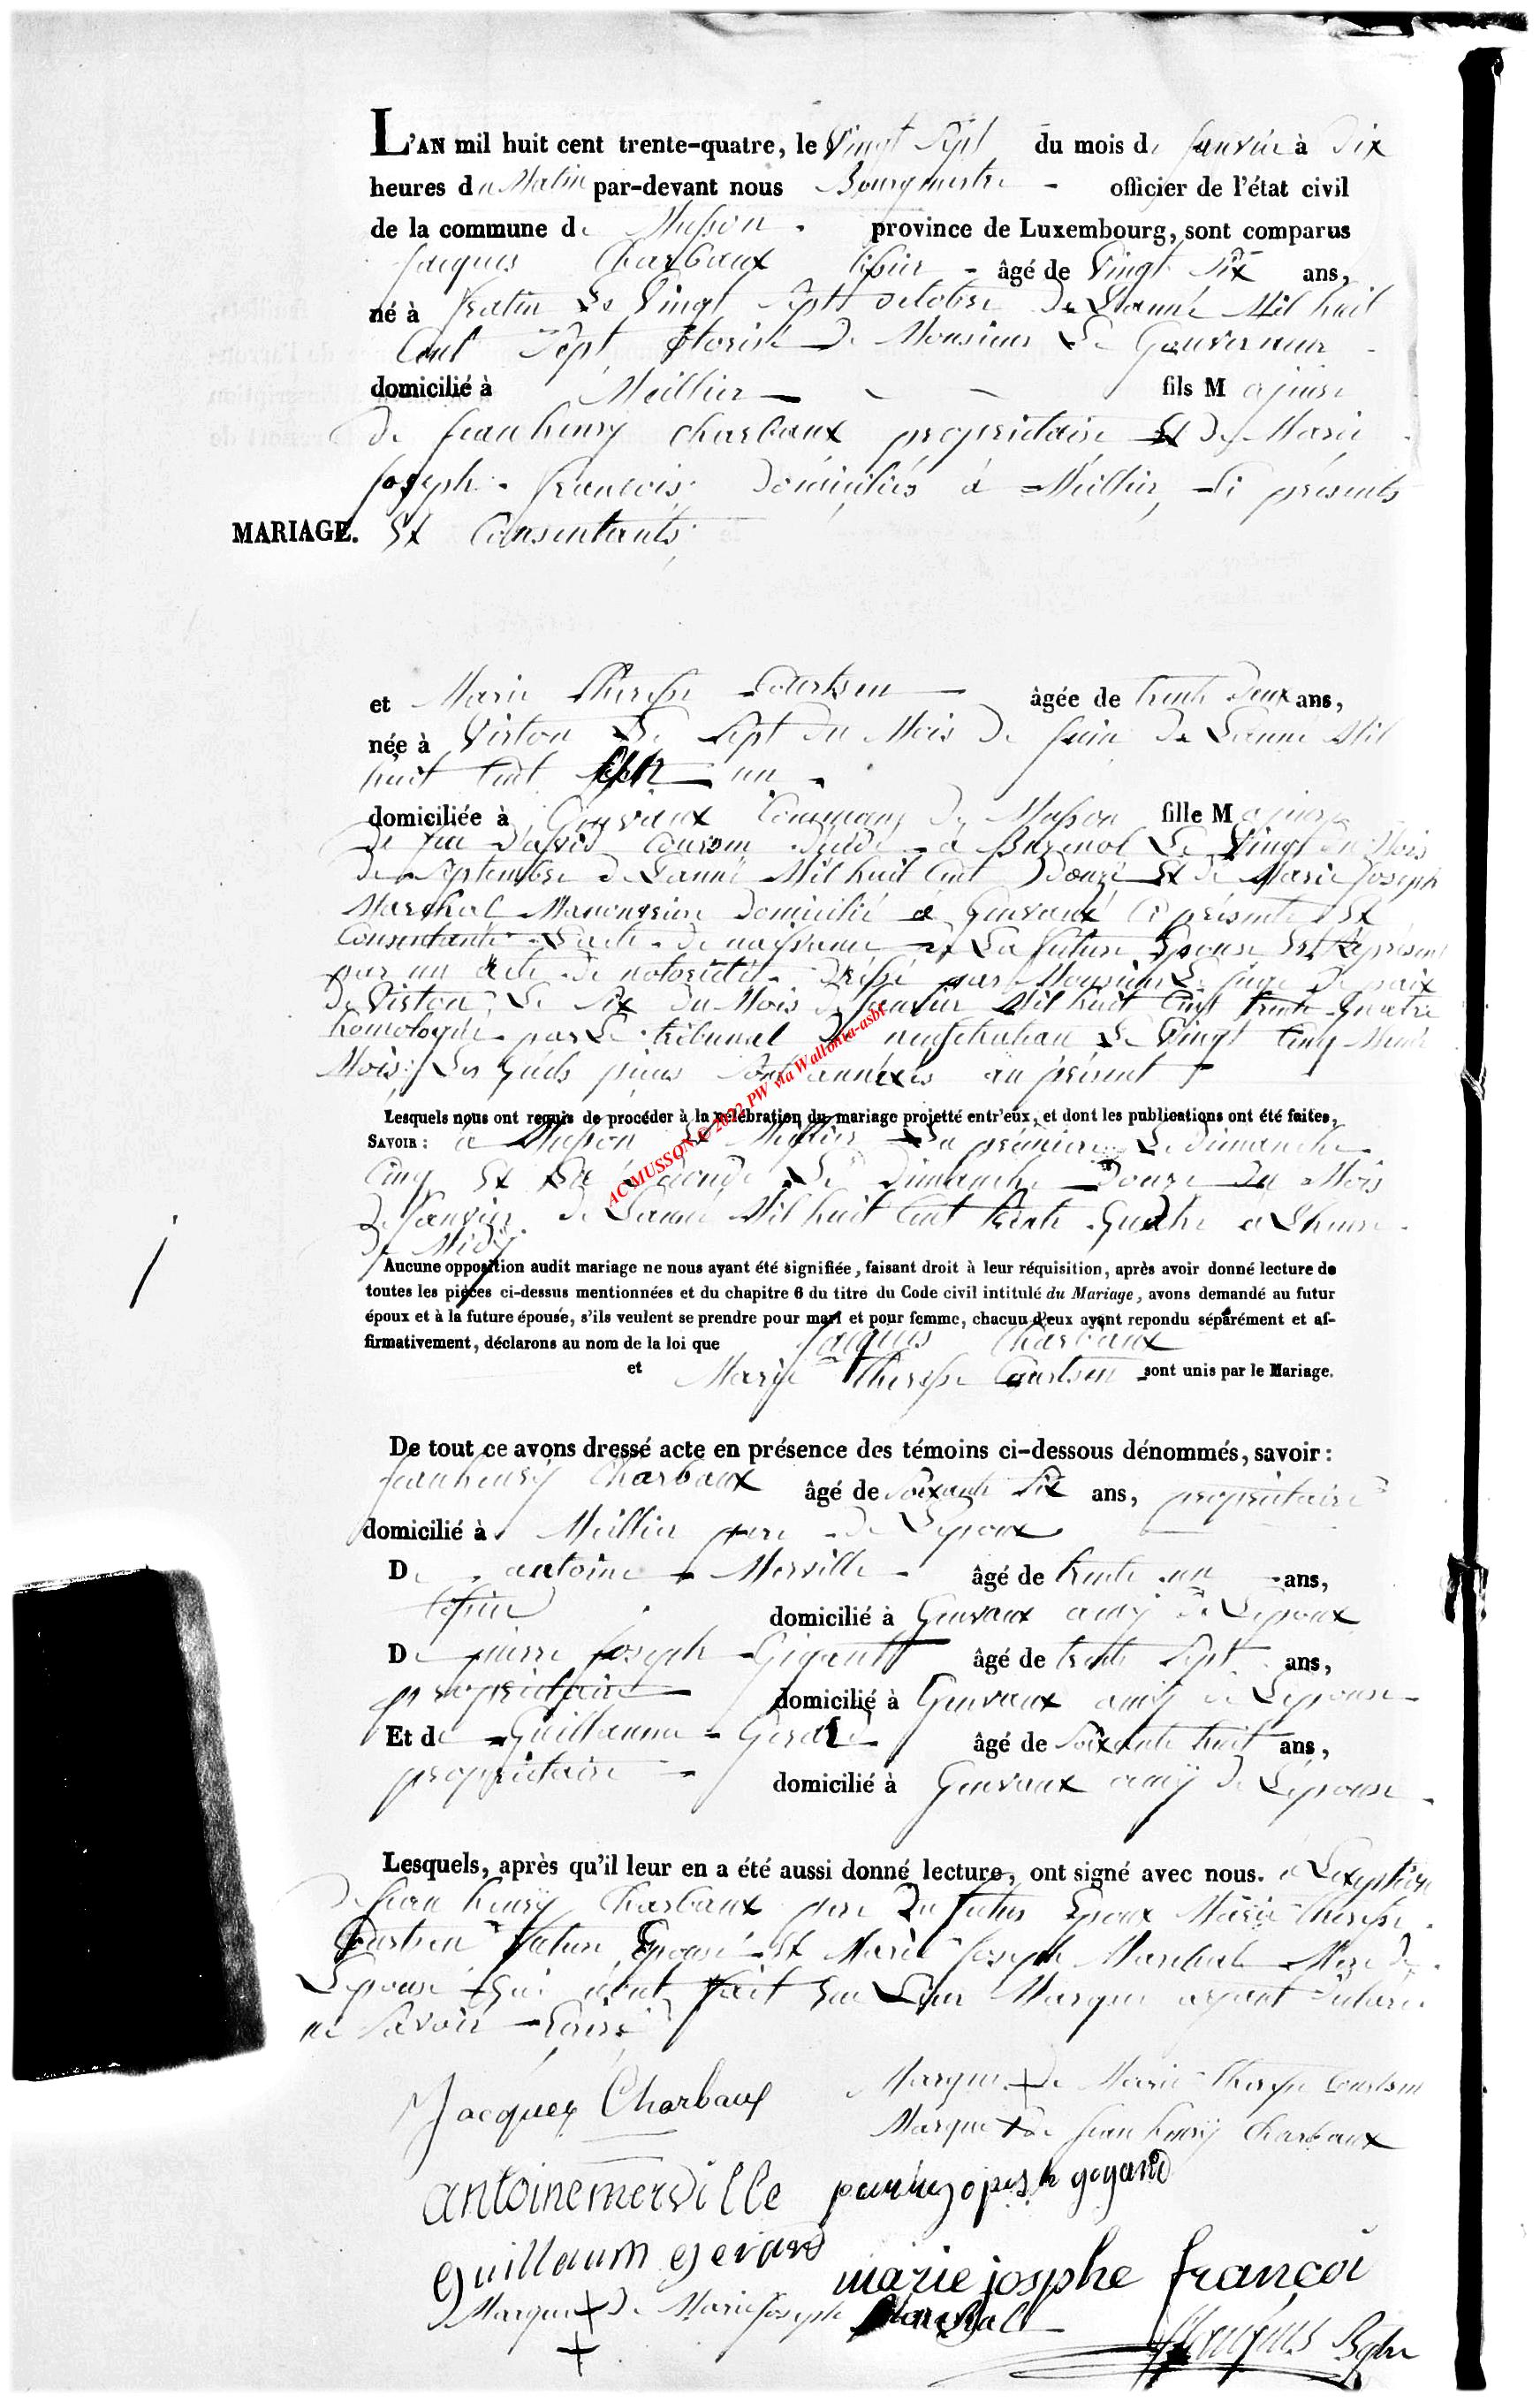 L'AN mil huit cent trente-quatre, le Vingt Sept du mois de janvier à Dix
heures du Matin par-devant nous Bourgmestre officier de l'état civil
de la commune de Musson province de Luxembourg, sont comparus
Jacques Charbaux âgé de Vingt Six ans,
né à Fratin Le Vingt Sept octobre De L'année Mil huit
Cent Sept De Monsieur Le Gouverneur
domicilié à Meillier fils M ajeure
De Jean henry Charbaux proprietaire Et De Marie
Joseph françois Domiciliés à Meillier, Ci présents
MARIAGE. Et Consentants
et Marie Therese Courtsen âgée de trente Deux ans,
née à Virton Le Sept Du Mois De Juin De L'année Mil
huit Cent un
domiciliée à Genvaux Commune De Musson fille M ajeure
De feu Courtsen à Buzenol Le Vingt du Mois
De Septembre De L'année Mil huit Cent Douze Et De Marie Joseph
Marechal Manouvriere Domicilié à Genvaux Ci présente Et
Consentante L'acte De naissance De La future Epouse Est
par un acte De notoriété Dréssé par Monsieur Le Juge De paix
De Virton, Le Six Du Mois De Janvier Mil huit Cent trente Quatre
homologuée par Le tribunal De neufchateau Le Vingt Cinq Meme
Mois: Les Quels pieces Sont annéxés au présent
Lesquels nous ont requis de procéder à la célébration du mariage projetté entr'eux, et dont les publications ont été faites,
SAVOIR : à Musson Et Meillier La premiere Le Dimanche
Cinq Et La Seconde Le Dimanche Douze Du Mois
De Janvier De L'année Mil huit Cent trente Quatre a L'heure
De Midy
Aucune opposition audit mariage ne nous ayant été signifiée, faisant droit à leur réquisition, après avoir donné lecture de
toutes les pièces ci-dessus mentionnées et du chapitre 6 du titre du Code civil intitulé du Mariage, avons demandé au futur
époux et à la future épouse, s'ils veulent se prendre pour mari et pour femme, chacun d'eux ayant repondu séparément et af-
firmativement, déclarons au nom de la loi que Jacques Charbaux
et Marie Therese Courtsen sont unis par le Mariage.
De tout ce avons dressé acte en présence des témoins ci-dessous dénommés, savoir :
Jean henry Charbaux âgé de Soixante Six ans, proprietaire
domicilié à Meillier pere De L'Epoux
De antoine Merville âgé de trente un ans,
domicilié à Genvaux amy De L'Epoux
De pierre Joseph Gigant âgé de trente Sept ans,
proprietaire domicilié à Genvaux amy De L'Epouse
Et de Guillaume Gerard âgé de Soixante huit ans,
proprietaire domicilié à Genvaux amy De L'Epouse
Lesquels, après qu'il leur en a été aussi donné lecture, ont signé avec nous. a L'exeption
De Jean henry Charbaux pere Du futur Epoux Marie Therese
Courtsen future Epouse Et Marie Joseph Marechal Mere De
L'Epouse Qui n'ont fait que Leur Marque ayant Declaré
ne Savoir Ecrire
Jacques Charbaux
Marque + De Marie Therese Courtsen
Marque + De Jean henry Charbaux
antoine merville
guillaum gerard
marie josphe françoi
Marque + De Marie Joseph Marechal
+
AC MUSSON © 2022 PW via Wallonia-asbl